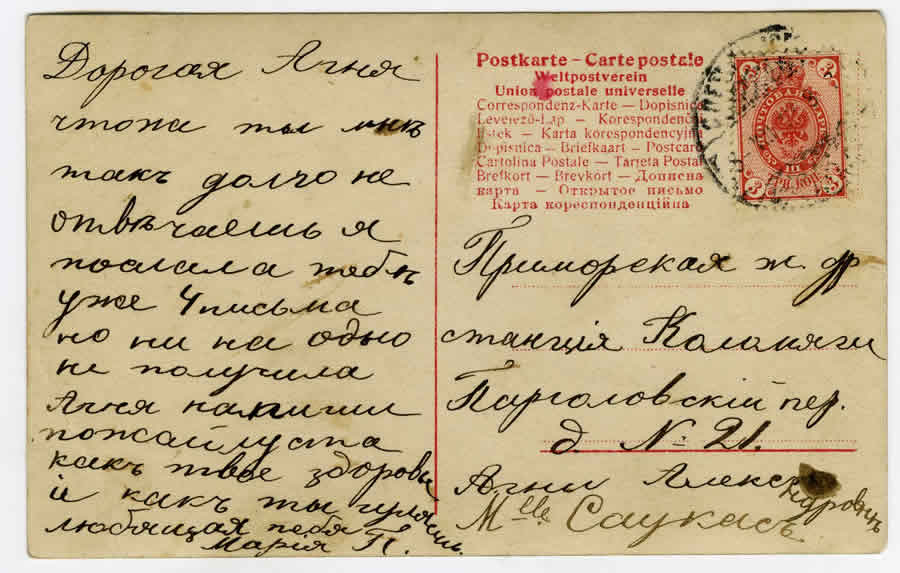 Дорогая Агня
чтоже ты мнѣ
такъ долго не
отвѣчаешь я
послала тебѣ
уже 4 письма
но ни на одно
не получила
Агня напиши
пожайлуста
какъ твое здоровье
и какъ ты гуляешь.
любящая тебя
Марія П.
Postkarte – Carte postale
Weltpostverein
Union postale universelle
Correspondenz-Karte — Dopisnice
Levelező-Lap — Korespondenčn
Listek — Karta korespondencyjna
Dopisnica — Briefkaart — Postcard
Cartolina Postale — Tarjeta Postal
Brefkort — Brevkort — Дописна
карта — Открытое письмо
Карта кореспонденційна
3 3
ПОЧТОВАЯ МАРКА
ТРИ КОП.
3 3
Приморская ж. др
станція Коломяги
Парголовскій пер.
д. № 21.
Агни Александровнѣ
Mlle Саукасъ